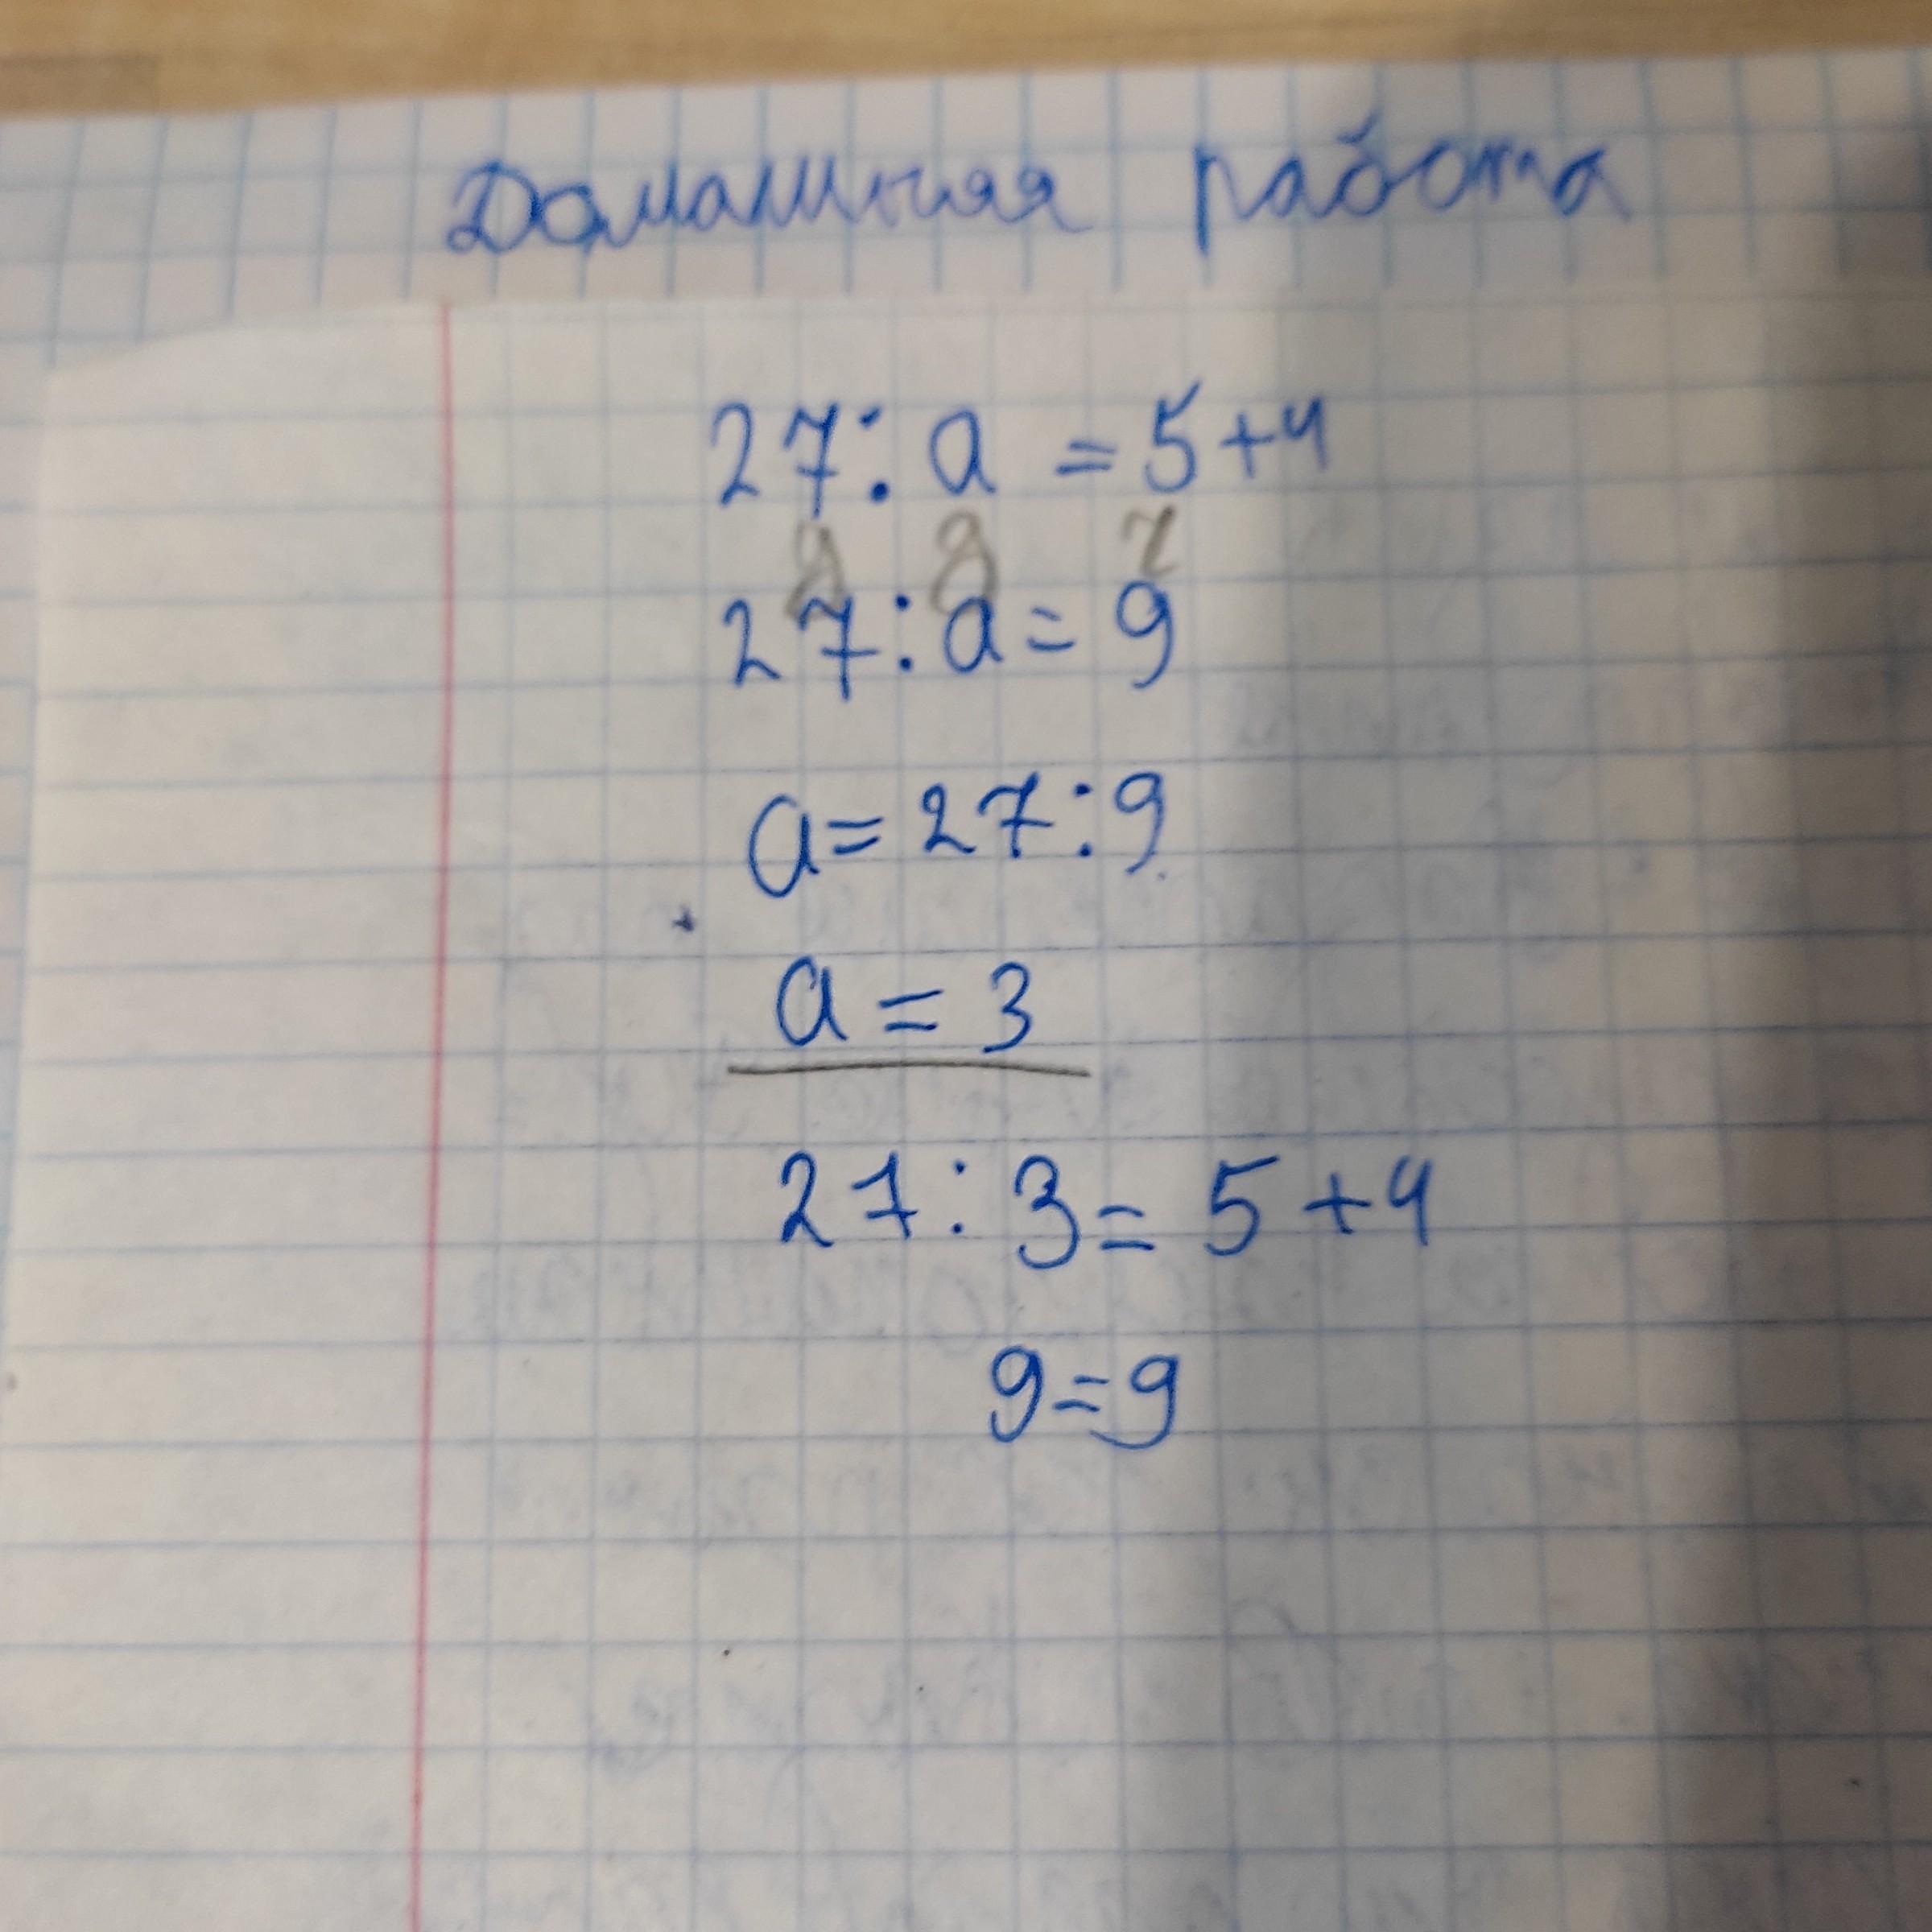 Домашняя работа
27 : a = 5 + 4
д д ч
27 : a = 9
a = 27 : 9
a = 3
27 : 3 = 5 + 4
9 = 9